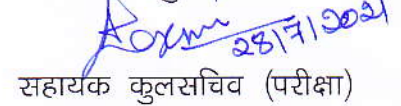 28/7/2021
सहायक कुलसचिव (परीक्षा)